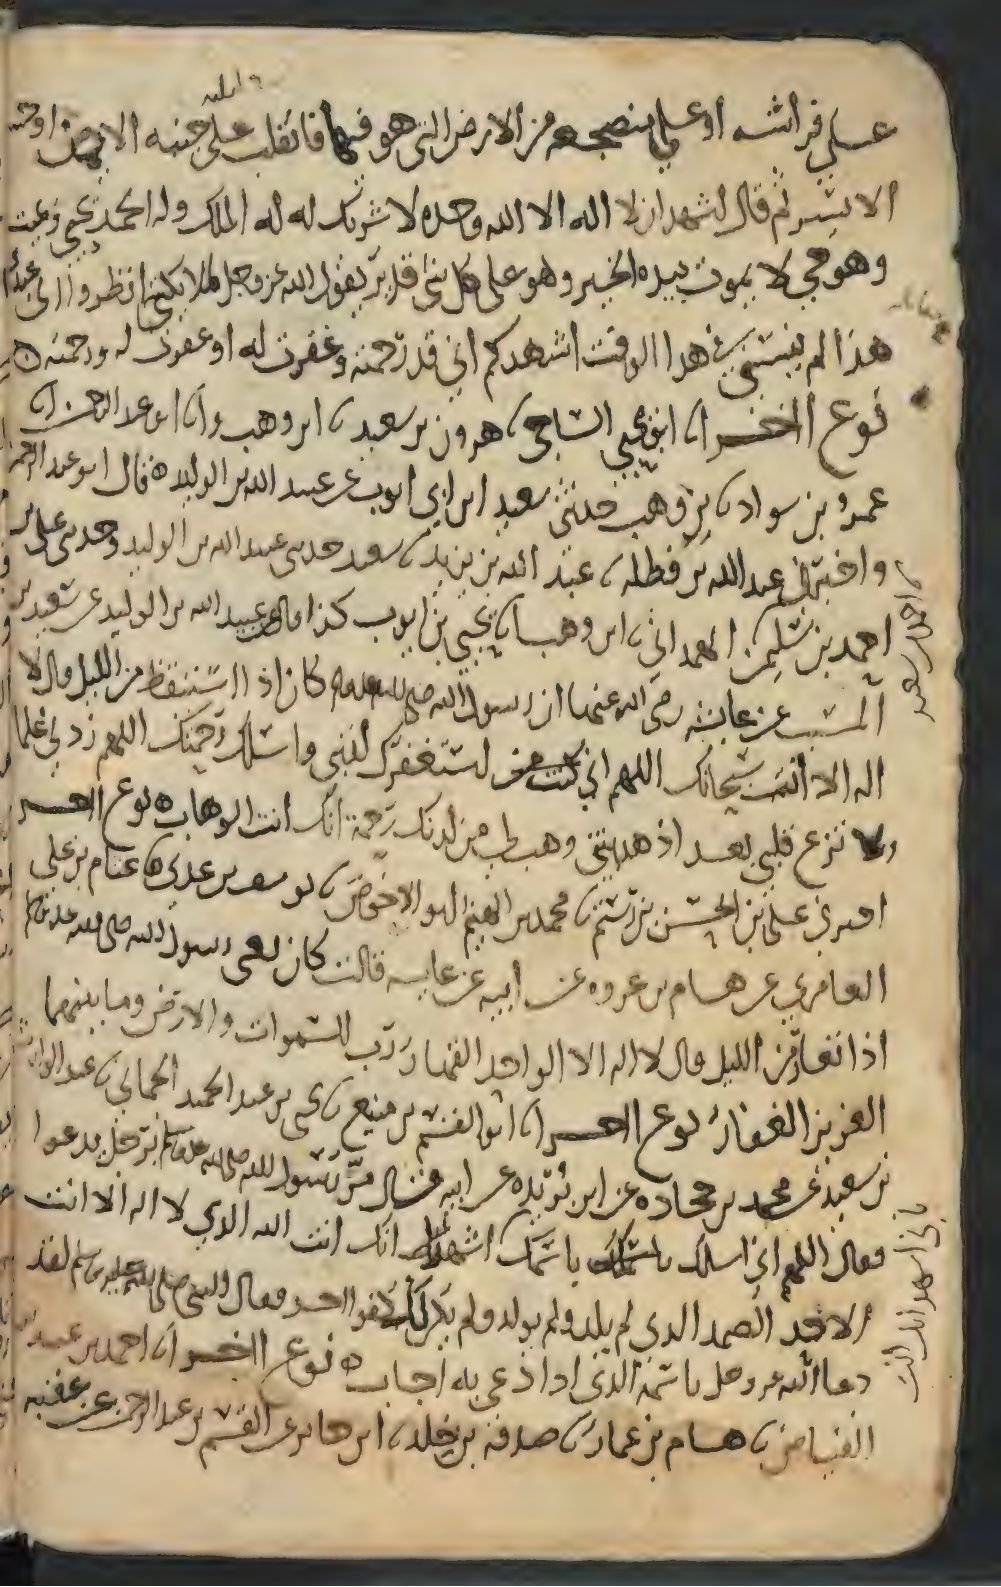 على فراشه او على مضجعه من الارض التي هو فيها فانقلب على جنبه الايمن او جنبه
الايسر ثم قال اشهد ان لا اله الا الله وحده لا شريك له له الملك وله الحمد يحيي ويميت
وهو حي لا يموت بيده الخير وهو على كل شي قدير يقول الله عز وجل لملايكته انظروا الى عبدي
هذا لم ينسني في هذا الوقت اشهدكم اني قد رحمته وغفرت له او غفرت له ورحمته
نوع اخر ابو يحيى الساجي هرون بن سعيد ابن وهب وانا ابو عبد الرحمن
عمرو بن سواد بن وهب حدثني سعيد ابن ابي ايوب عن عبد الله بن الوليد قال ابو عبد الرحمن
واخبرني عبد الله بن فضاله عبد الله بن يزيد سعيد حدثني عبد الله بن الوليد وحدثني علي بن
احمد بن سليمن الهمداني ابن وهب يحيى بن ايوب كذا قال عن عبيد الله بن الوليد عن سعيد بن
المسيب عن عايشه رضي الله عنها ان رسول الله صلى الله عليه كان اذا استيقظ من الليل قال لا
اله الا انت سبحانك اللهم اني استغفرك لذنبي واسلك رحمتك اللهم زدني علما
ولا تزغ قلبي بعد اذ هديتني وهب لي من لدنك رحمة انك انت الوهاب نوع اخر
اخبرني علي بن الحسين بن رستم محمد بن الهيثم ابو الاحوص يوسف بن عدي عثام بن علي
العامري عن هشام بن عروه عن ابيه عن عايشه قالت كان رسول الله صلى الله عليه وسلم
اذا تعار من الليل قال لا اله الا الواحد القهار رب السموات والارض وما بينهما
العزيز الغفار نوع اخر ابو القسم بن منيع يحيى بن عبد الحميد الحماني عبد الوارث
بن سعيد عن محمد بن جحاده عن ابن بريده عن ابيه قال مر رسول الله صلى الله عليه وسلم برجل يدعوا
فقال اللهم اني اسلك باسمك اشهد انك انت الله الذي لا اله الا انت
الاحد الصمد الذي لم يلد ولم يولد ولم يكن لك كفوا احد فقال النبي صلى الله عليه وسلم لقد
دعا الله عز وجل باسمه الذي اذا دعي به اجاب نوع اخر احمد بن عبد
الفياض هشام بن عمار صدقه بن خلد ابن جابر عن القسم بن عبد الرحمن عن عقبه
باني اشهد انك انت